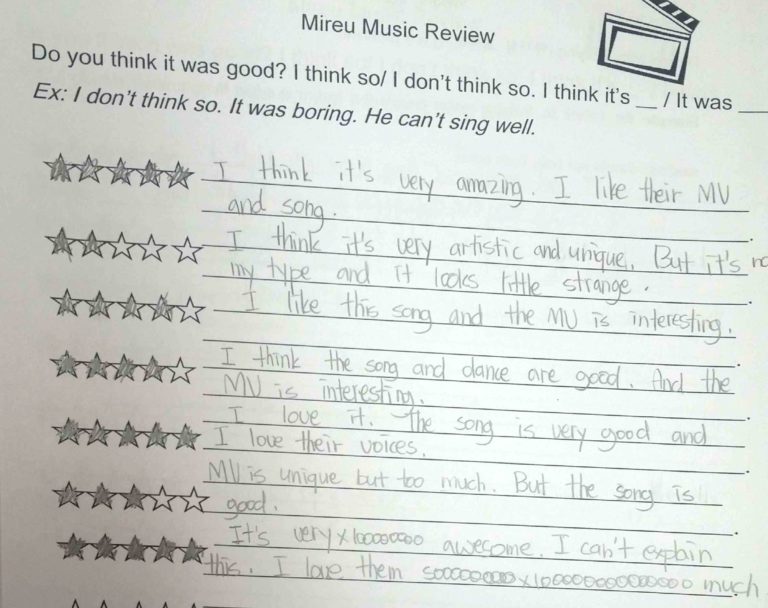 Mireu Music Review
Do you think it was good? I think so/ I don't think so. I think it's __ / It was ___
Ex: I don't think so. It was boring. He can't sing well.
I think it's very amazing. I like their MV
and song.
I think it's very artistic and unique. But it's no
my type and it looks little strange.
I like this song and the MV is interesting.
I think the song and dance are good. And the
MV is interesting.
I love it. The song is very good and
I love their voices.
MV is unique but too much. But the song is
good.
It's very x awesome. I can't explain
this. I love them much